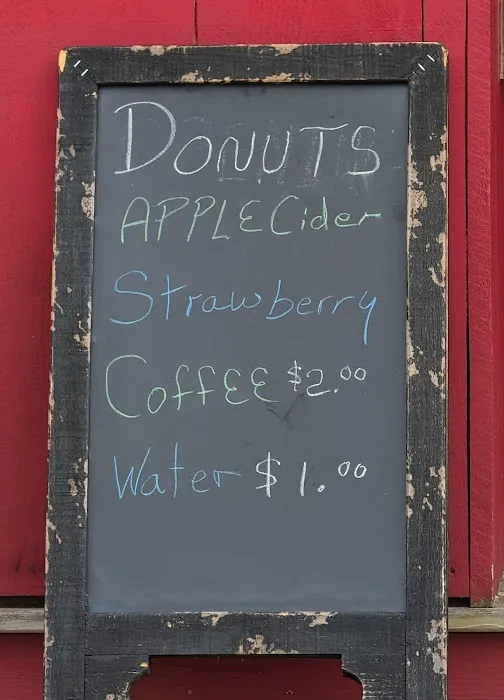 DONUTS
APPLE Cider
Strawberry
Coffee $2.00
Water $1.00